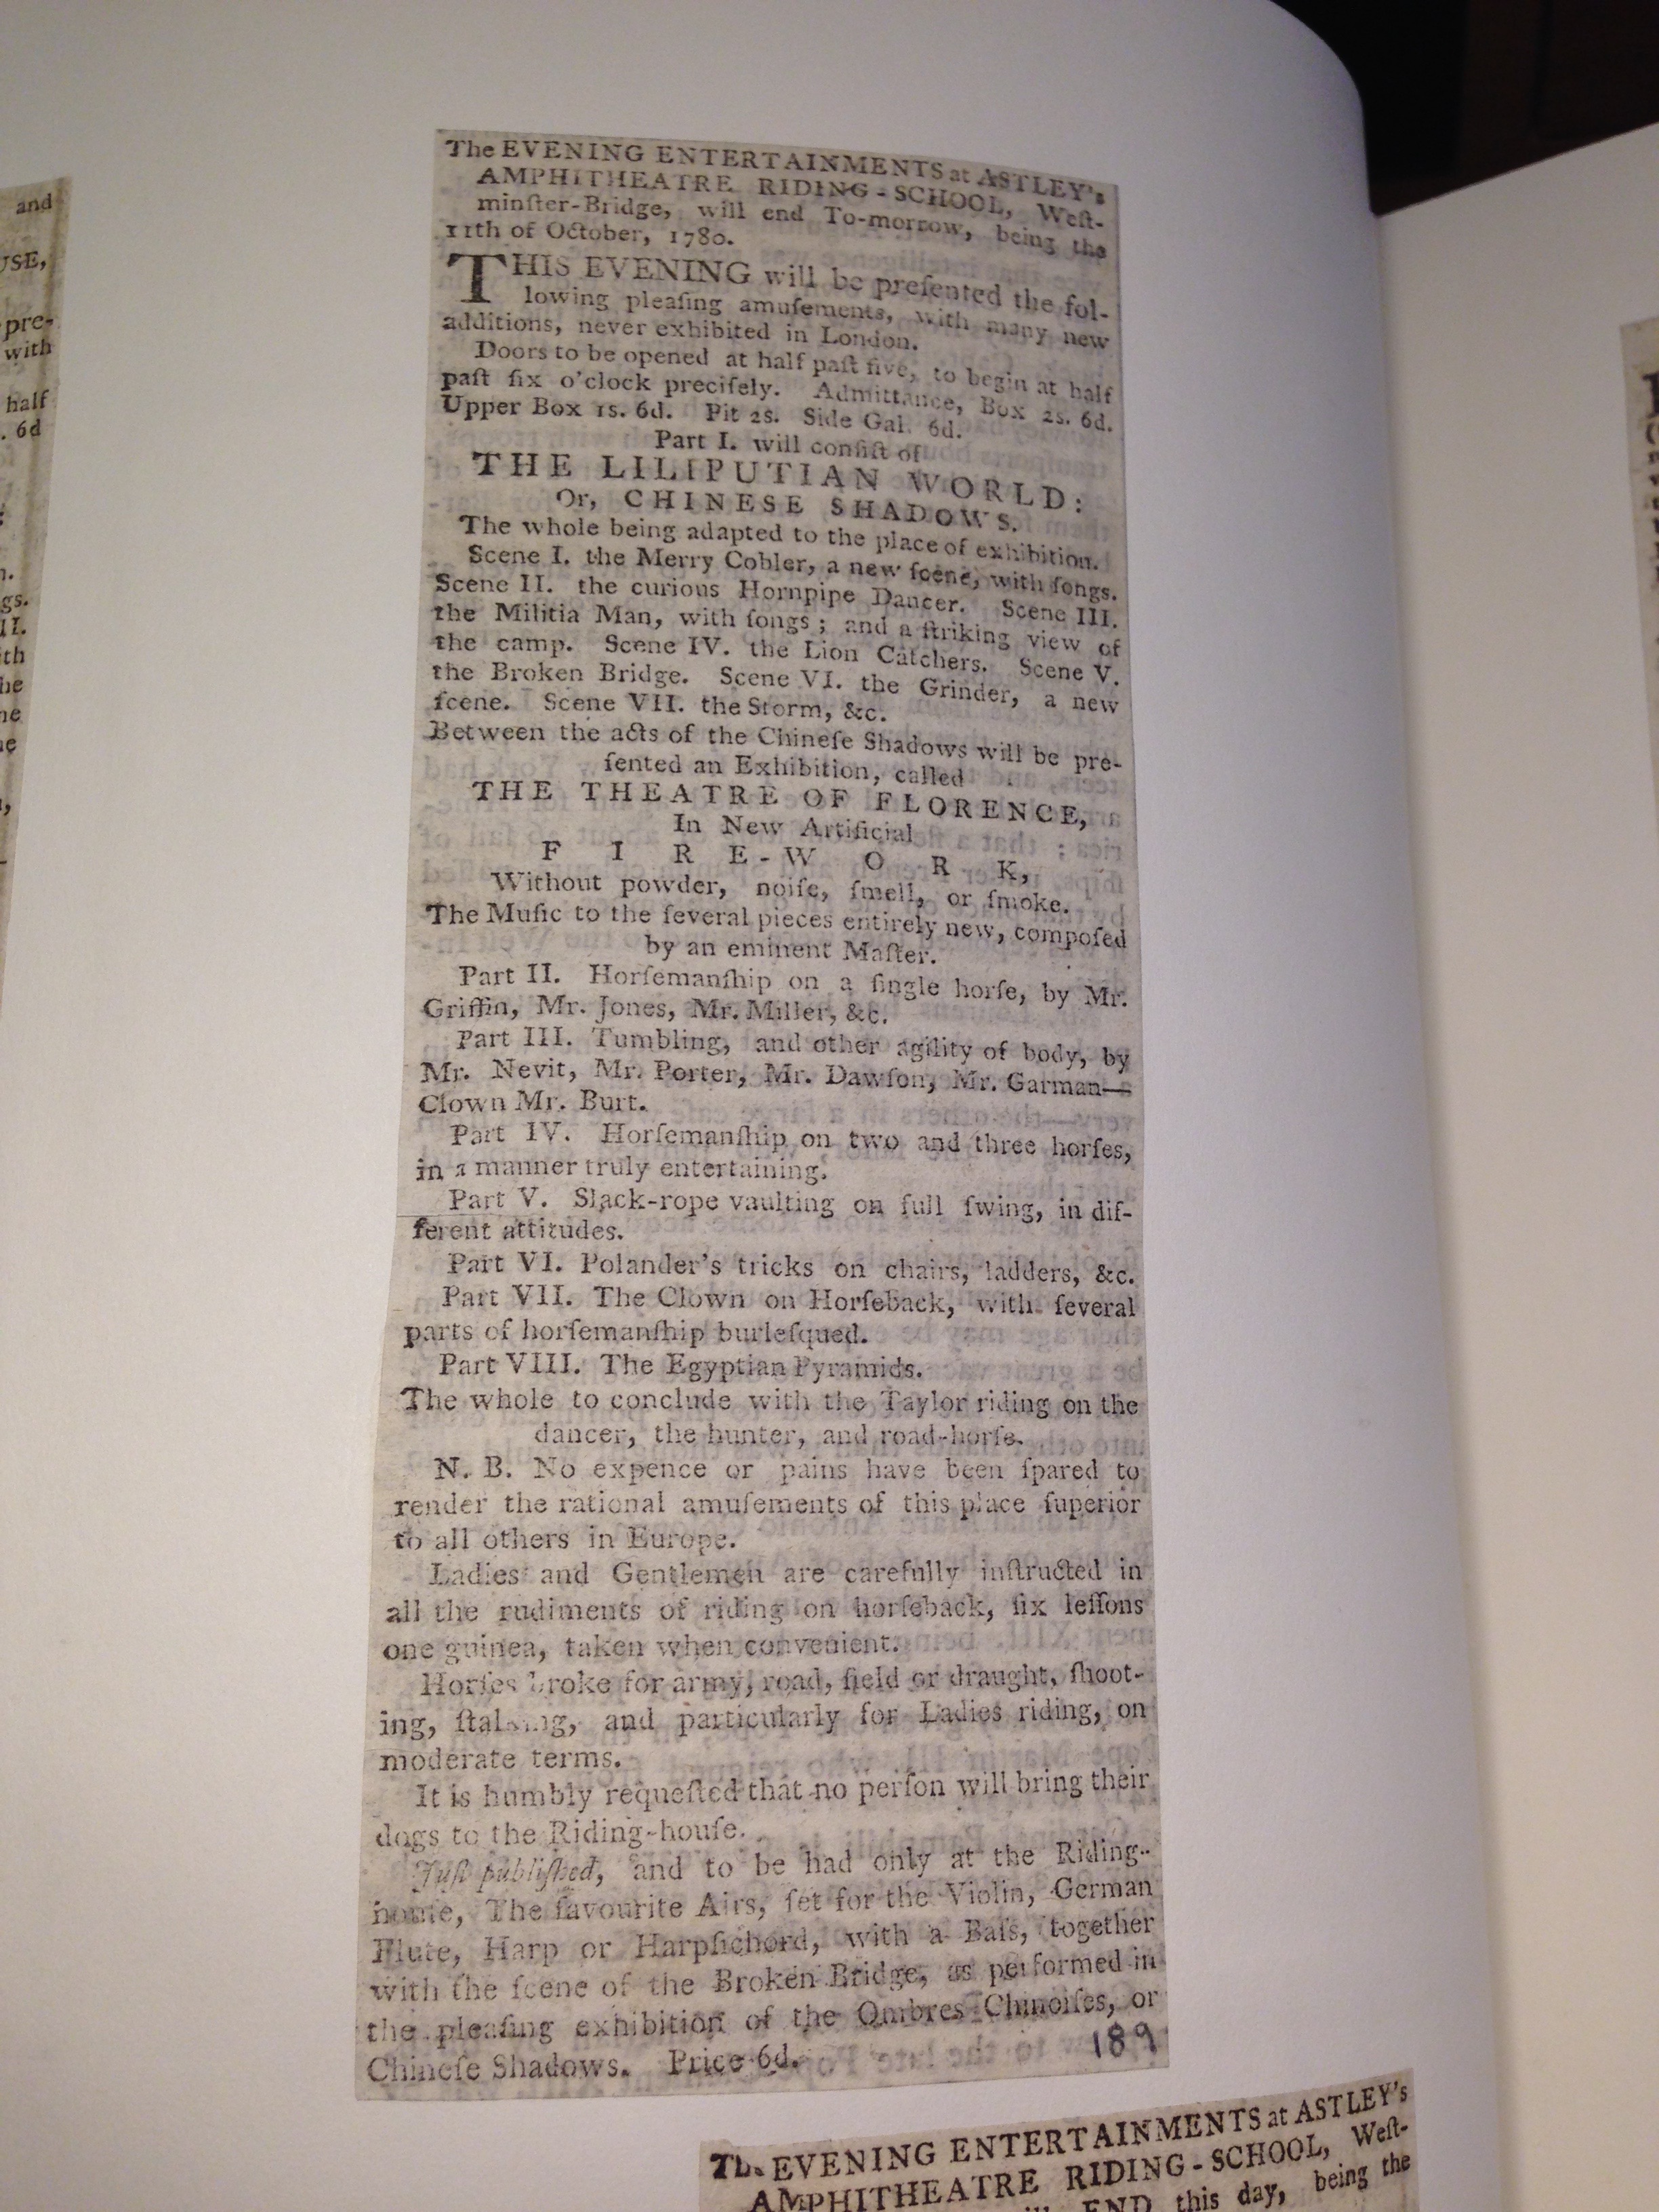 The EVENING ENTERTAINMENTS at ASTLEY's
AMPHITHEATRE RIDING-SCHOOL, Weſt-
minſter-Bridge, will end To-morrow, being the
11th of October, 1780.
THIS EVENING will be preſented the fol-
lowing pleaſing amuſements, with many new
additions, never exhibited in London.
Doors to be opened at half paſt five, to begin at half
paſt ſix o'clock preciſely. Admittance, Box 2s. 6d.
Upper Box 1s. 6d. Pit 2s. Side Gal. 6d.
Part I. will conſiſt of
THE LILIPUTIAN WORLD:
Or, CHINESE SHADOWS.
The whole being adapted to the place of exhibition.
Scene I. the Merry Cobler, a new ſcene, with ſongs.
Scene II. the curious Hornpipe Dancer. Scene III.
the Militia Man, with ſongs; and a ſtriking view of
the camp. Scene IV. the Lion Catchers. Scene V.
the Broken Bridge. Scene VI. the Grinder, a new
ſcene. Scene VII. the Storm, &c.
Between the acts of the Chineſe Shadows will be pre-
ſented an Exhibition, called
THE THEATRE OF FLORENCE,
In New Artificial
FIRE-WORK,
Without powder, noiſe, ſmell, or ſmoke.
The Muſic to the ſeveral pieces entirely new, compoſed
by an eminent Maſter.
Part II. Horſemanſhip on a ſingle horſe, by Mr.
Griffin, Mr. Jones, Mr. Miller, &c.
Part III. Tumbling, and other agility of body, by
Mr. Nevit, Mr. Porter, Mr. Dawſon, Mr. Garman—
Clown Mr. Burt.
Part IV. Horſemanſhip on two and three horſes,
in a manner truly entertaining.
Part V. Slack-rope vaulting on full ſwing, in dif-
ferent attitudes.
Part VI. Polander's tricks on chairs, ladders, &c.
Part VII. The Clown on Horſeback, with ſeveral
parts of horſemanſhip burleſqued.
Part VIII. The Egyptian Pyramids.
The whole to conclude with the Taylor riding on the
dancer, the hunter, and road-horſe.
N. B. No expence or pains have been ſpared to
render the rational amuſements of this place ſuperior
to all others in Europe.
Ladies and Gentlemen are carefully inſtructed in
all the rudiments of riding on horſeback, ſix leſſons
one guinea, taken when convenient.
Horſes broke for army, road, field or draught, ſhoot-
ing, ſtalking, and particularly for Ladies riding, on
moderate terms.
It is humbly requeſted that no perſon will bring their
dogs to the Riding-houſe.
Juſt publiſhed, and to be had only at the Riding-
houſe, The favourite Airs, ſet for the Violin, German
Flute, Harp or Harpſichord, with a Baſs, together
with the ſcene of the Broken Bridge, as performed in
the pleaſing exhibition of the Ombres Chinoiſes, or
Chineſe Shadows. Price 6d.
189
The EVENING ENTERTAINMENTS at ASTLEY's
AMPHITHEATRE RIDING-SCHOOL, Weſt-
END this day, being the
and
USE,
pre-
with
half
. 6d